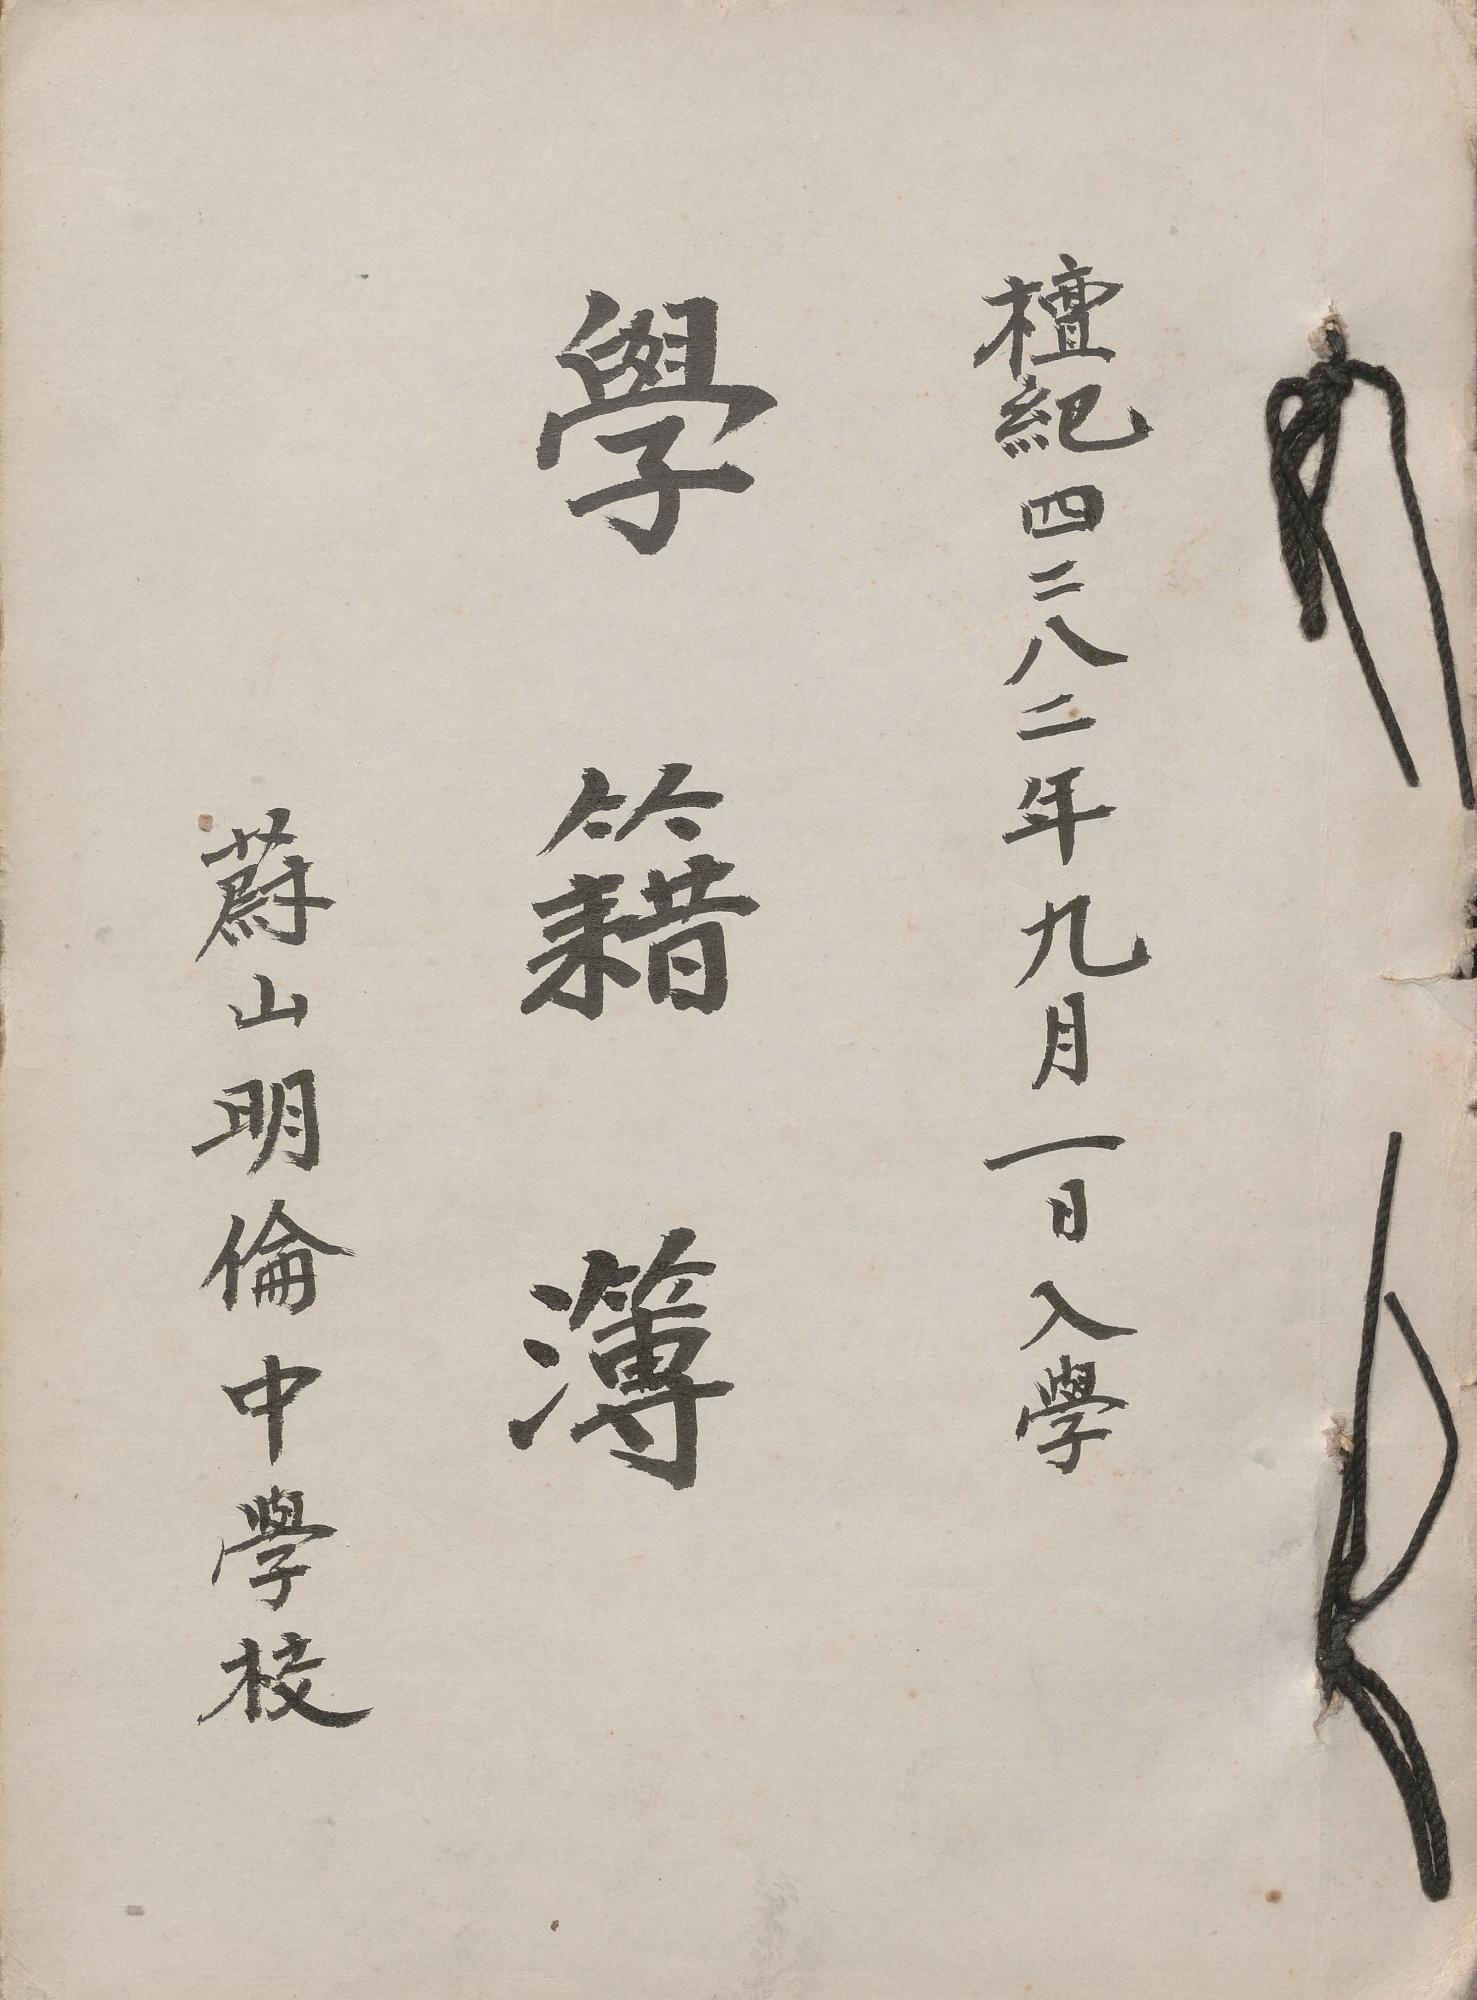 檀紀四二八二年九月一日入學
學籍簿
蔚山明倫中學校